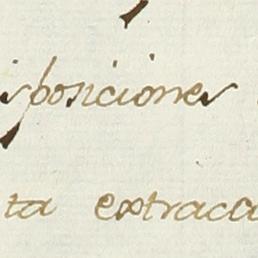 sposiciones
ta extraca